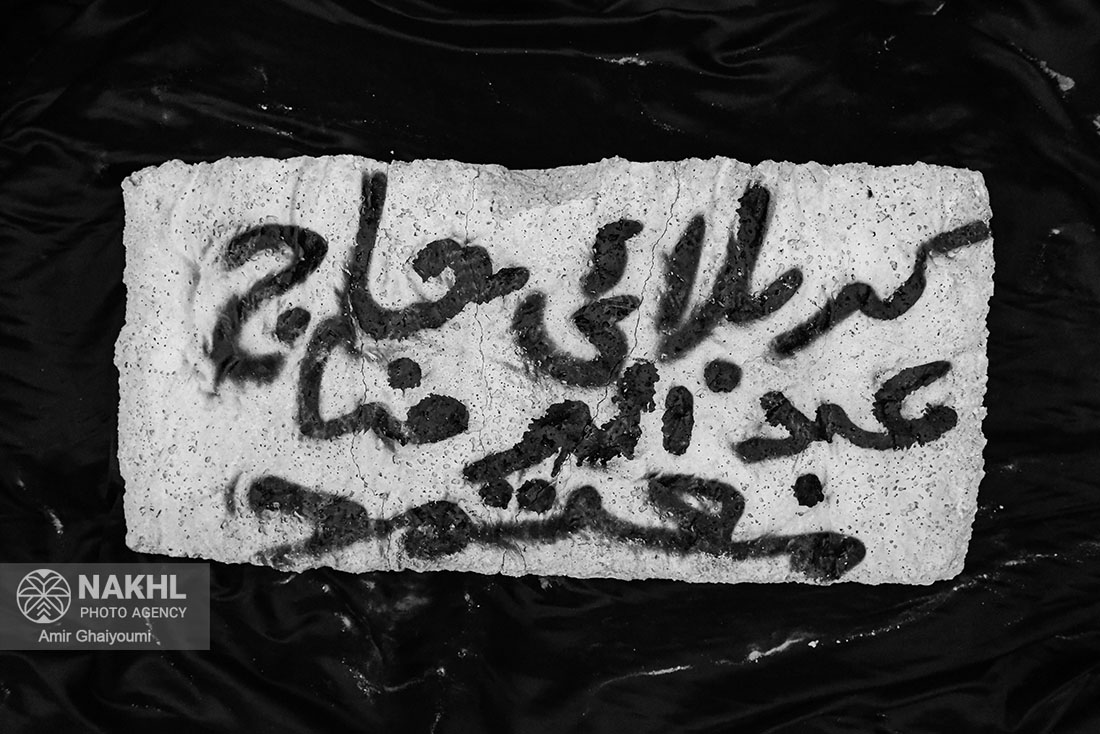 کربلائی حاج
عبدالرضا
معتمد
NAKHL
PHOTO AGENCY
Amir Ghaiyoumi